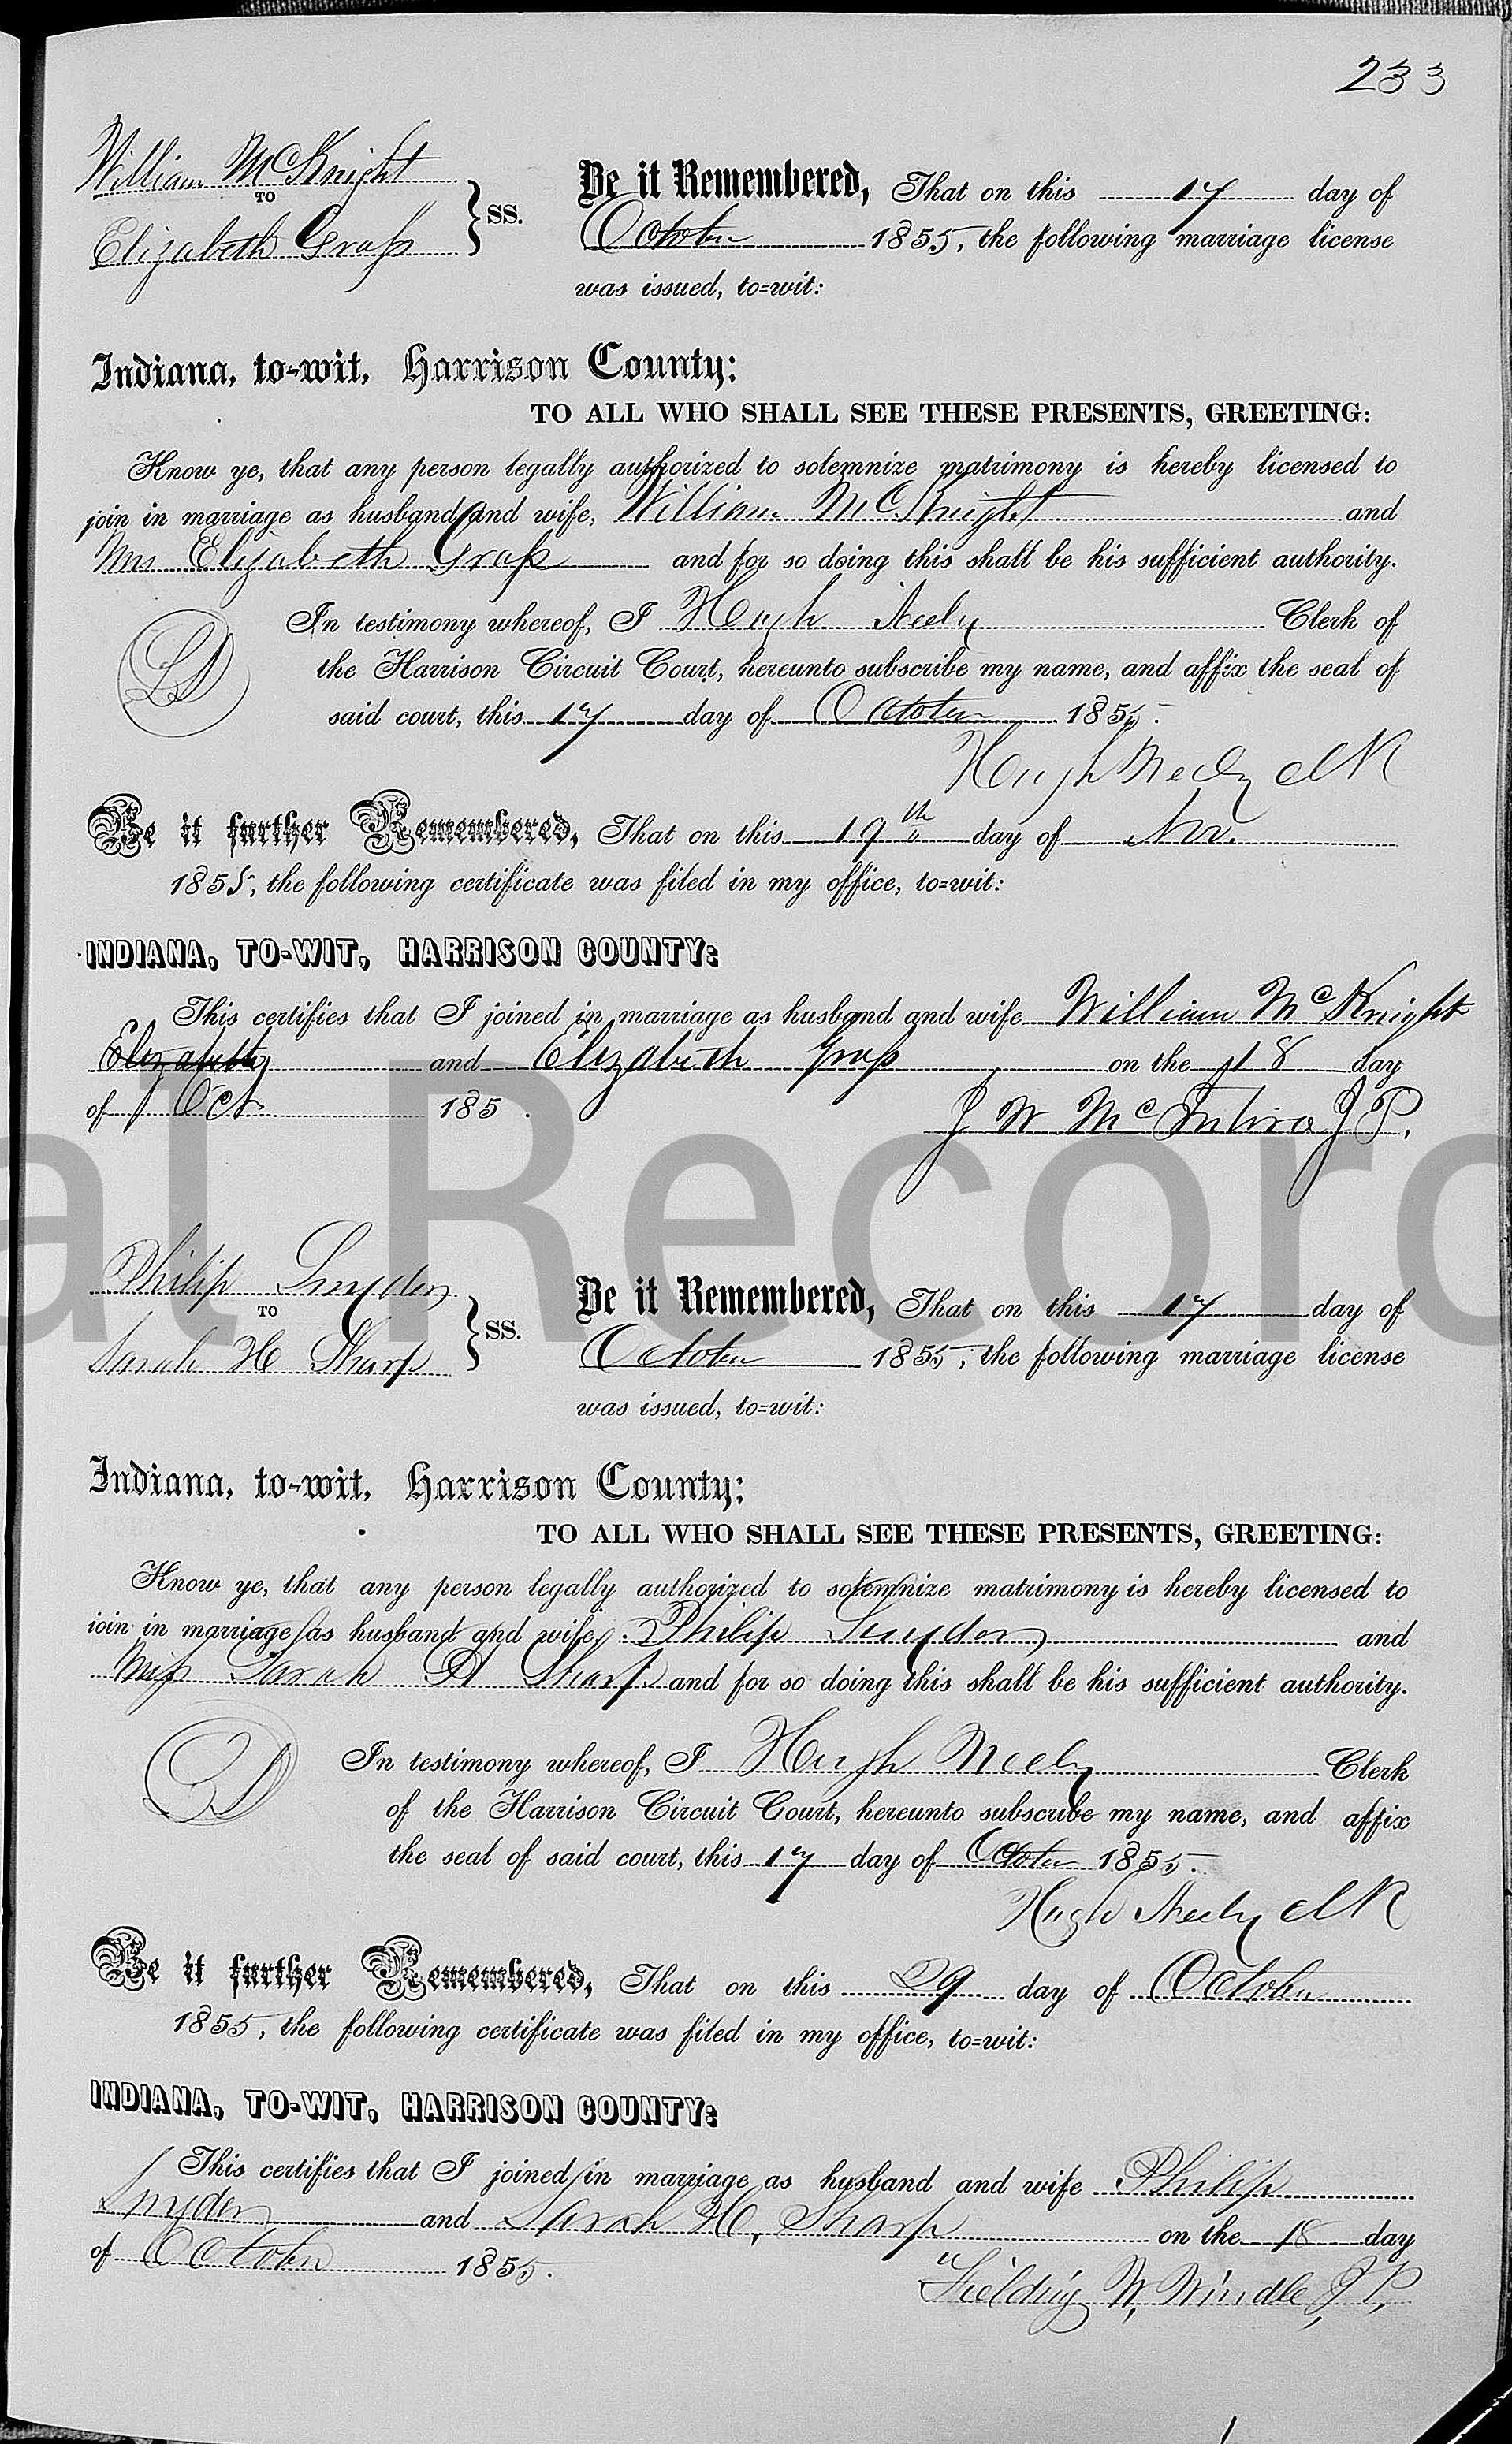 233
William McKnight
TO
Elizabeth Grass
SS.
Be it Remembered, That on this 17 day of
October 1855, the following marriage license
was issued, to=wit:
Indiana, to-wit, Harrison County:
TO ALL WHO SHALL SEE THESE PRESENTS, GREETING:
Know ye, that any person legally authorized to solemnize matrimony is hereby licensed to
join in marriage as husband and wife, William McKnight and
Mrs Elizabeth Grass and for so doing this shall be his sufficient authority.
In testimony whereof, I Hugh Neely Clerk of
the Harrison Circuit Court, hereunto subscribe my name, and affix the seal of
said court, this 17 day of October 1855.
Hugh Neely Clk
Be it further Remembered, That on this 19th day of Nov.
1855, the following certificate was filed in my office, to=wit:
INDIANA, TO-WIT, HARRISON COUNTY:
This certifies that I joined in marriage as husband and wife William McKnight
Elizabeth and Elizabeth Grass on the 18 day
of Oct 185 .
J W McIntire J P.
al Recor
Philip Snyder
TO
Sarah H Sharp
SS.
Be it Remembered, That on this 17 day of
October 1855, the following marriage license
was issued, to=wit:
Indiana, to-wit, Harrison County:
TO ALL WHO SHALL SEE THESE PRESENTS, GREETING:
Know ye, that any person legally authorized to solemnize matrimony is hereby licensed to
join in marriage as husband and wife, Philip Snyder and
Miss Sarah H Sharp and for so doing this shall be his sufficient authority.
In testimony whereof, I Hugh Neely Clerk
of the Harrison Circuit Court, hereunto subscribe my name, and affix
the seal of said court, this 17 day of October 1855.
Hugh Neely Clk
Be it further Remembered, That on this 29 day of October
1855, the following certificate was filed in my office, to=wit:
INDIANA, TO-WIT, HARRISON COUNTY:
This certifies that I joined in marriage as husband and wife Philip
Snyder and Sarah H, Sharp on the 18 day
of October 1855.
Fielding W, Windle, J P,